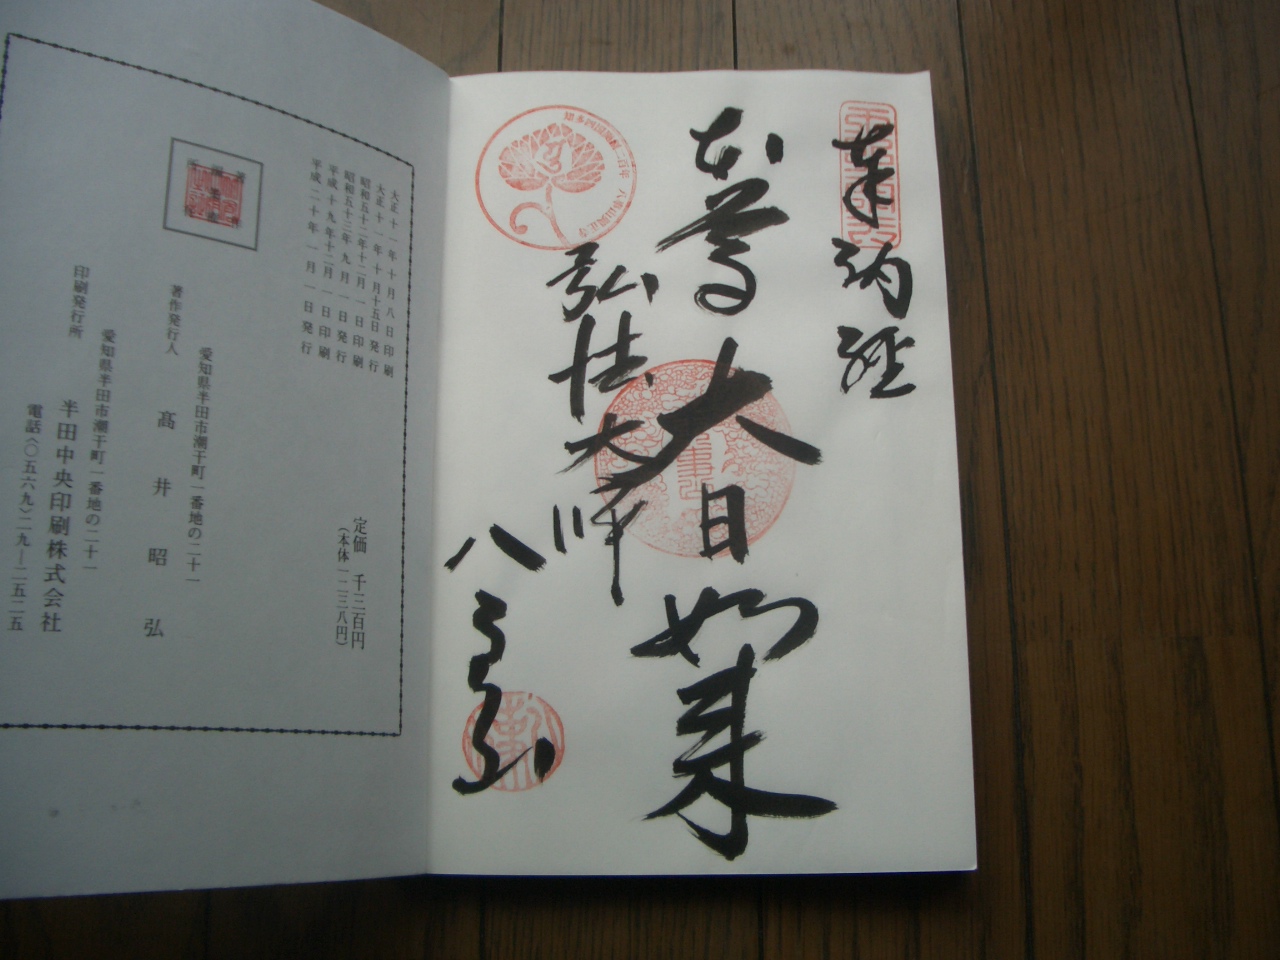 奉納経
本尊
大日如来
弘法大師
八事山
知多四国開創二百年 八事山興正寺
大正十一年十月八日印刷
大正十一年十月十五日発行
昭和五十二年十二月一日印刷
昭和五十三年九月一日発行
平成十九年十二月一日印刷
平成二十年一月一日発行
定価 千三百円
(本体一二三八円)
愛知県半田市潮干町一番地の二十一
著作発行人 髙井昭弘
愛知県半田市潮干町一番地の二十一
印刷発行所 半田中央印刷株式会社
電話〈〇五六九〉二九―二五二五